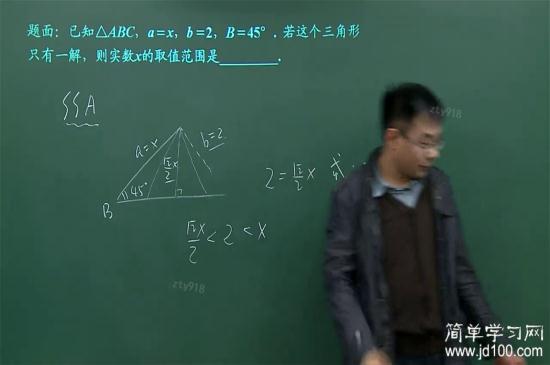 题面：已知△ABC，a=x，b=2，B=45°．若这个三角形
只有一解，则实数x的取值范围是________．
SSA
zty918
a=x
b=2
√2/2 x
45°
B
2=√2/2 x
√2x/2 < 2 < x
zty918
简单学习网
www.jd100.com